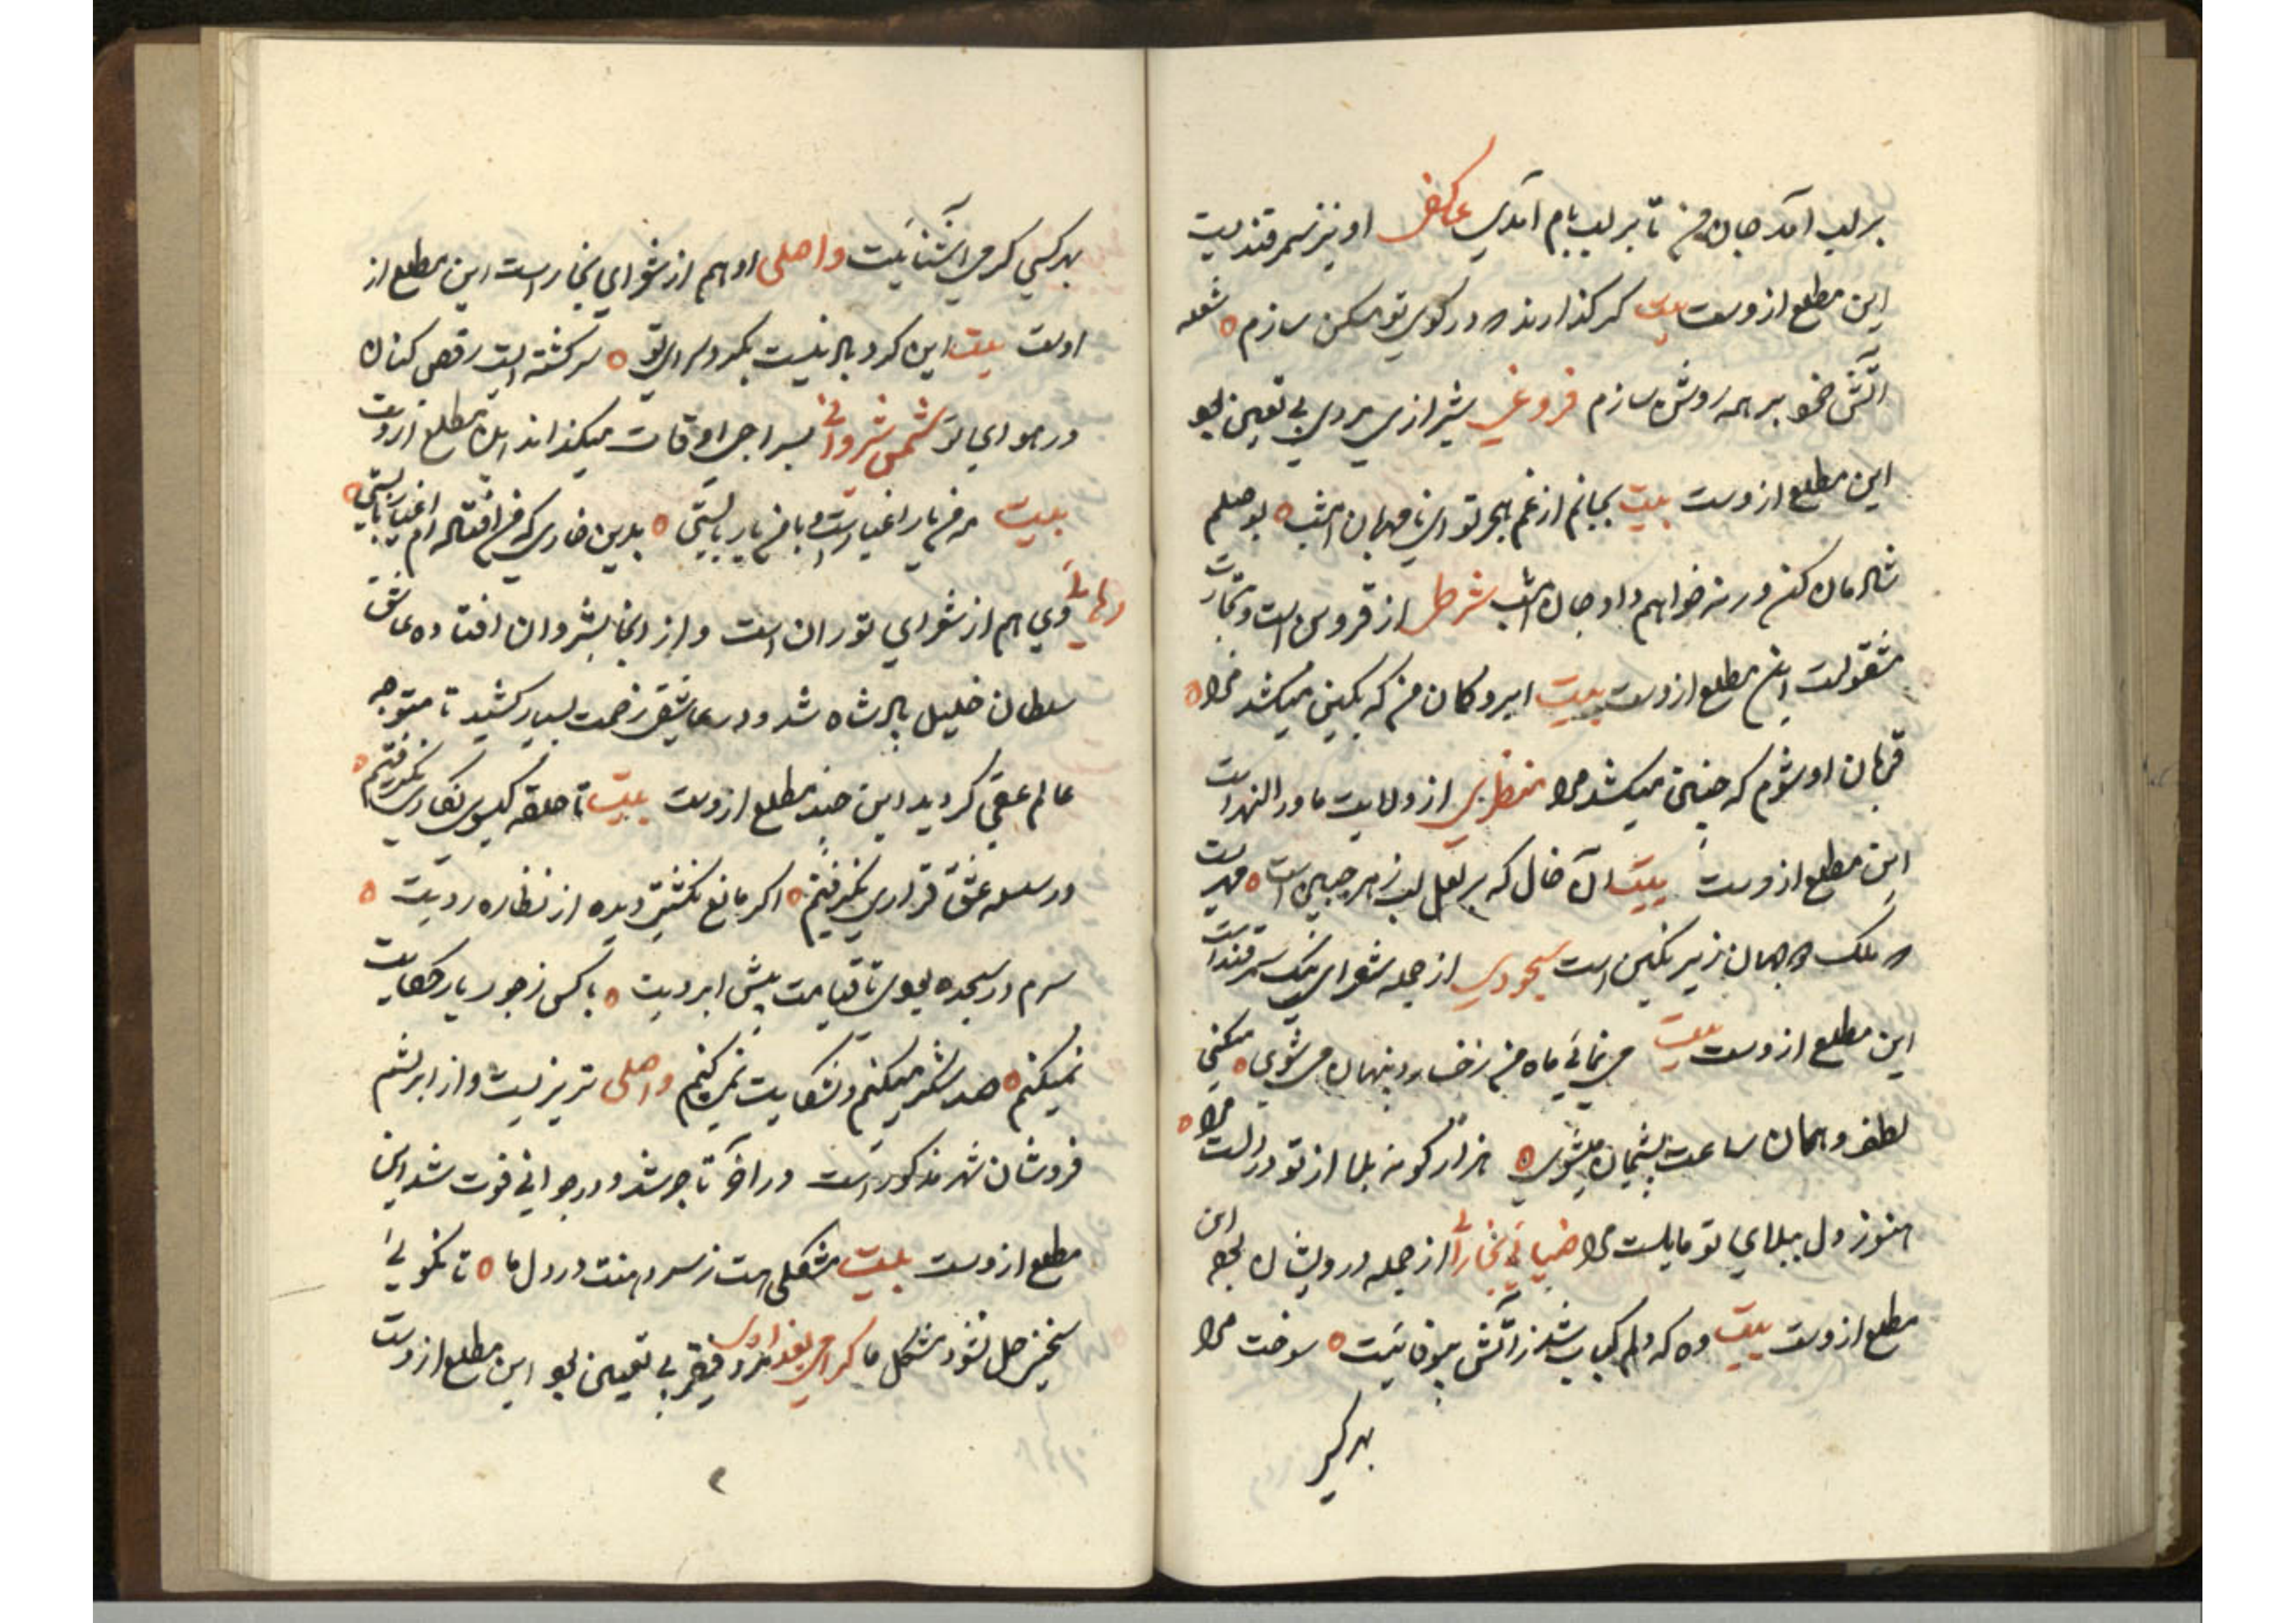 بر لب آمد جان من تا بر لب بام آمدی عاکفی او نیز سمرقندیست
این مطلع ازوست بیت کر کذارند که در کوی تو مسکن سازم شعله
آتش خود بر همه روشن سازم فروغی شیرازی مردی بی تعین بود
این مطلع ازوست بیت بجانم از غم هجر تو ای نامهربان امشب بوصلم
شادمان کن ور نه خواهم داد جان امشب شرطی از قزوین است و بتجارت
مشغولست این مطلع ازوست بیت ابرو کمان من که بکین میکشد مرا
قربان او شوم که چنین میکشد مرا منظری از ولایت ماورالنهر است
این مطلع ازوست بیت آن خال که بر لعل لب زهره جبین است مهریست
که ملک همه جهان زیر نکین است سجودی از جمله شعرای نیک سمرقند است
این مطلع ازوست بیت می نمائی ماه من رخسار و پنهان می شوی میکنی
لطف و همان ساعت پشیمان میشوی هزار کونه بلا از تو در دلست مرا
هنوز دل ببلای تو مایلست مرا ضیائی بخارائی از جمله درویشان بود این
مطلع ازوست بیت وه که دلم کباب شد ز آتش بیوفائیت سوخت مرا
بهر کسی
بهر کسی کرمی آشنائیت واصلی او هم از شعرای بخار است این مطلع از
اوست بیت این کرد باد نیست بکرد سرای تو سرکشته ایست رقص کنان
در هوای تو شمس شروانی بسراجی اوقات میکذراند این مطلع ازوست
بیت نه من یار اغیارست با من یار بایستی بدین خاری که من افتاده ام اغیار بایستی
رهائی وی هم از شعرای توران است و از آنجا بشروان افتاده عاشق
سلطان خلیل پادشاه شد و در عاشقی زحمت بسیار کشید تا متوجه
عالم عقبی کردید این چند مطلع ازوست بیت تا حلقه کیسوی نکاری نکرفتیم
در سلسله عشق قراری نکرفتیم اکر مانع نکشتی دیده از نظاره رویت
سرم در سجده بودی تا قیامت پیش ابرویت با کس ز جور یار حکایت
نمیکنم صد شکر میکنم و شکایت نمی کنم واصلی تبریزیست و از ابریشم
فروشان شهر مذکور است در آخر تاجر شد و در جوانی فوت شد این
مطلع ازوست بیت مشکلی هست ز سر دهنت در دل ما تا نکوئی
سخنی حل نشود مشکل ما کرامی بغدادی مرد فقیر بی تعین بود این مطلع ازوست